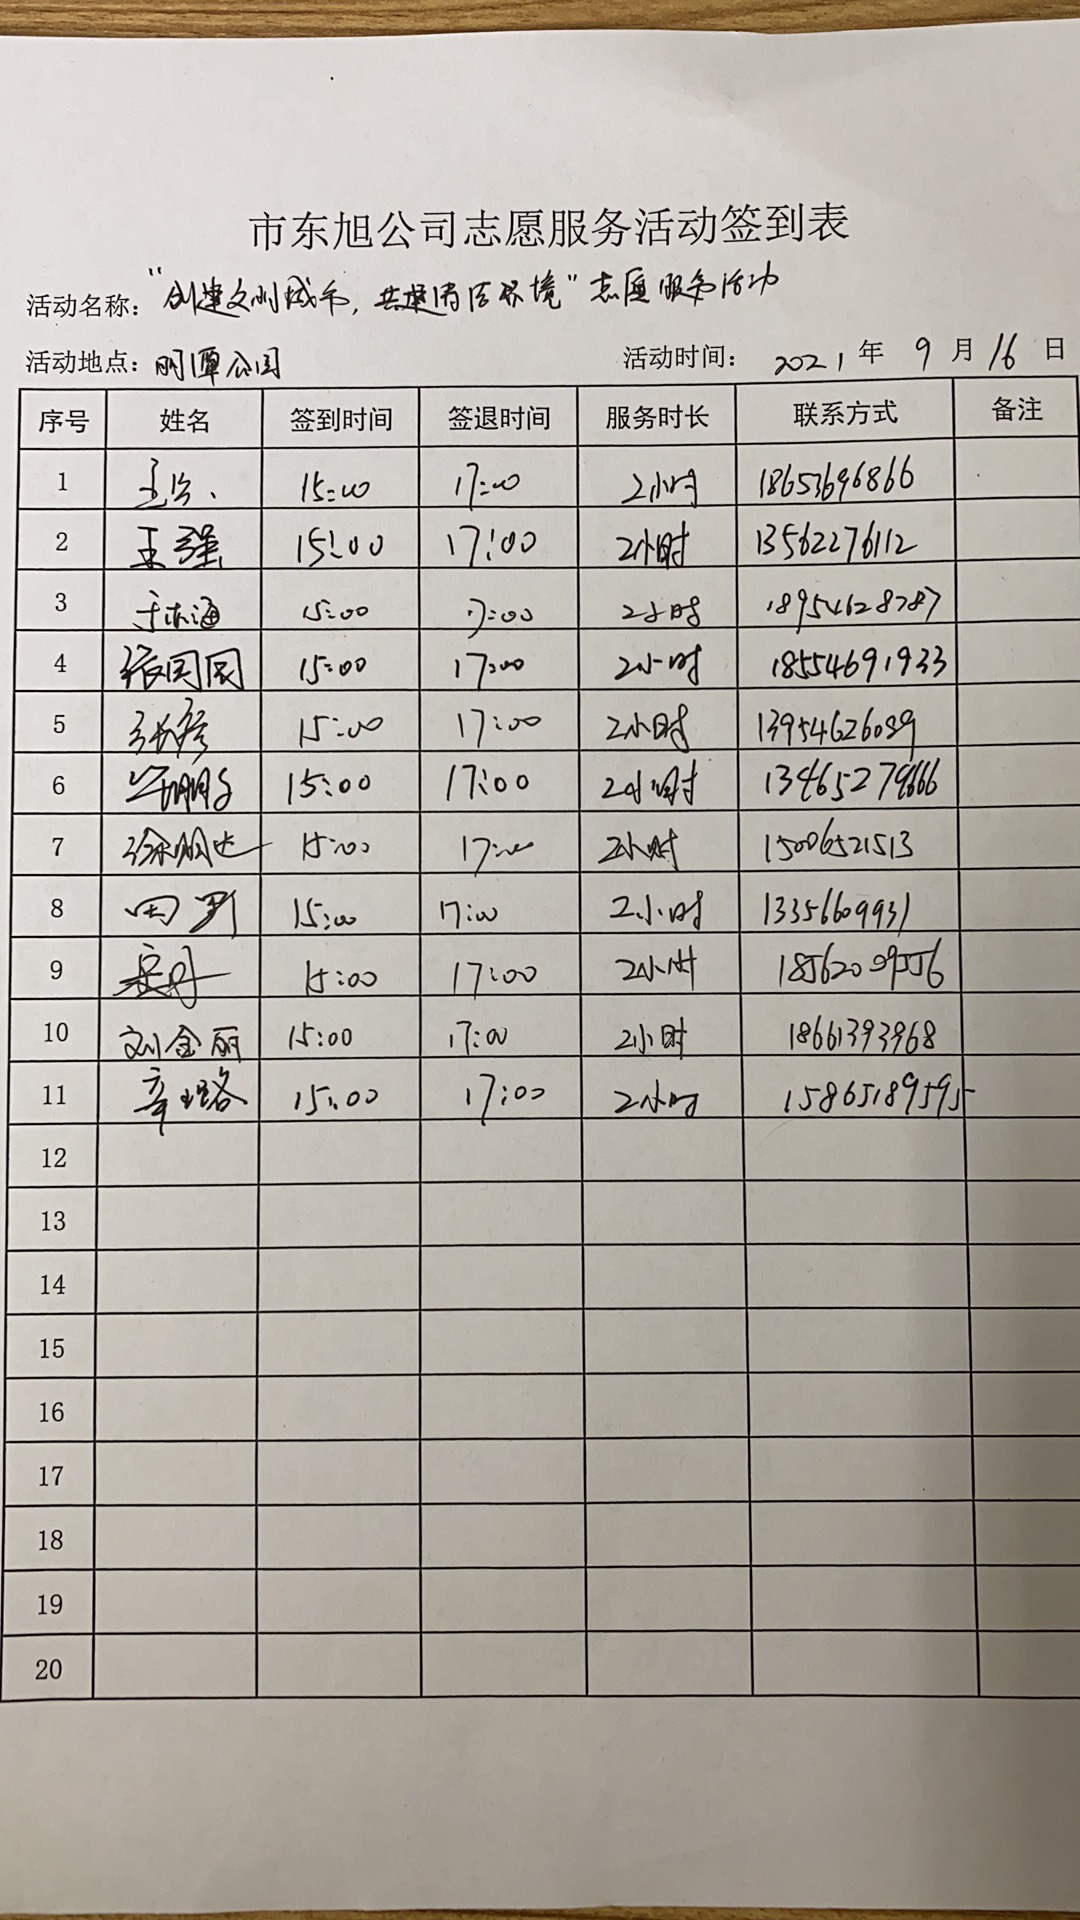 市东旭公司志愿服务活动签到表
活动名称："创建文明城市，共建清洁环境"志愿服务活动
活动地点：明潭公园 活动时间： 2021 年 9 月 16 日
序号 姓名 签到时间 签退时间 服务时长 联系方式 备注
1 15:00 17:00 2小时 18653696866
2 王强 15:00 17:00 2小时 13562276112
3 15:00 17:00 2小时 18954628787
4 张园园 15:00 17:00 2小时 18554691933
5 张彦 15:00 17:00 2小时 13954626089
6 15:00 17:00 2小时
7 徐明达 15:00 17:00 2小时 15006521513
8 田野 15:00 17:00 2小时 13356609931
9 15:00 17:00 2小时
10 刘金丽 15:00 17:00 2小时 18661393968
11 辛璐 15:00 17:00 2小时 15865189595
12
13
14
15
16
17
18
19
20